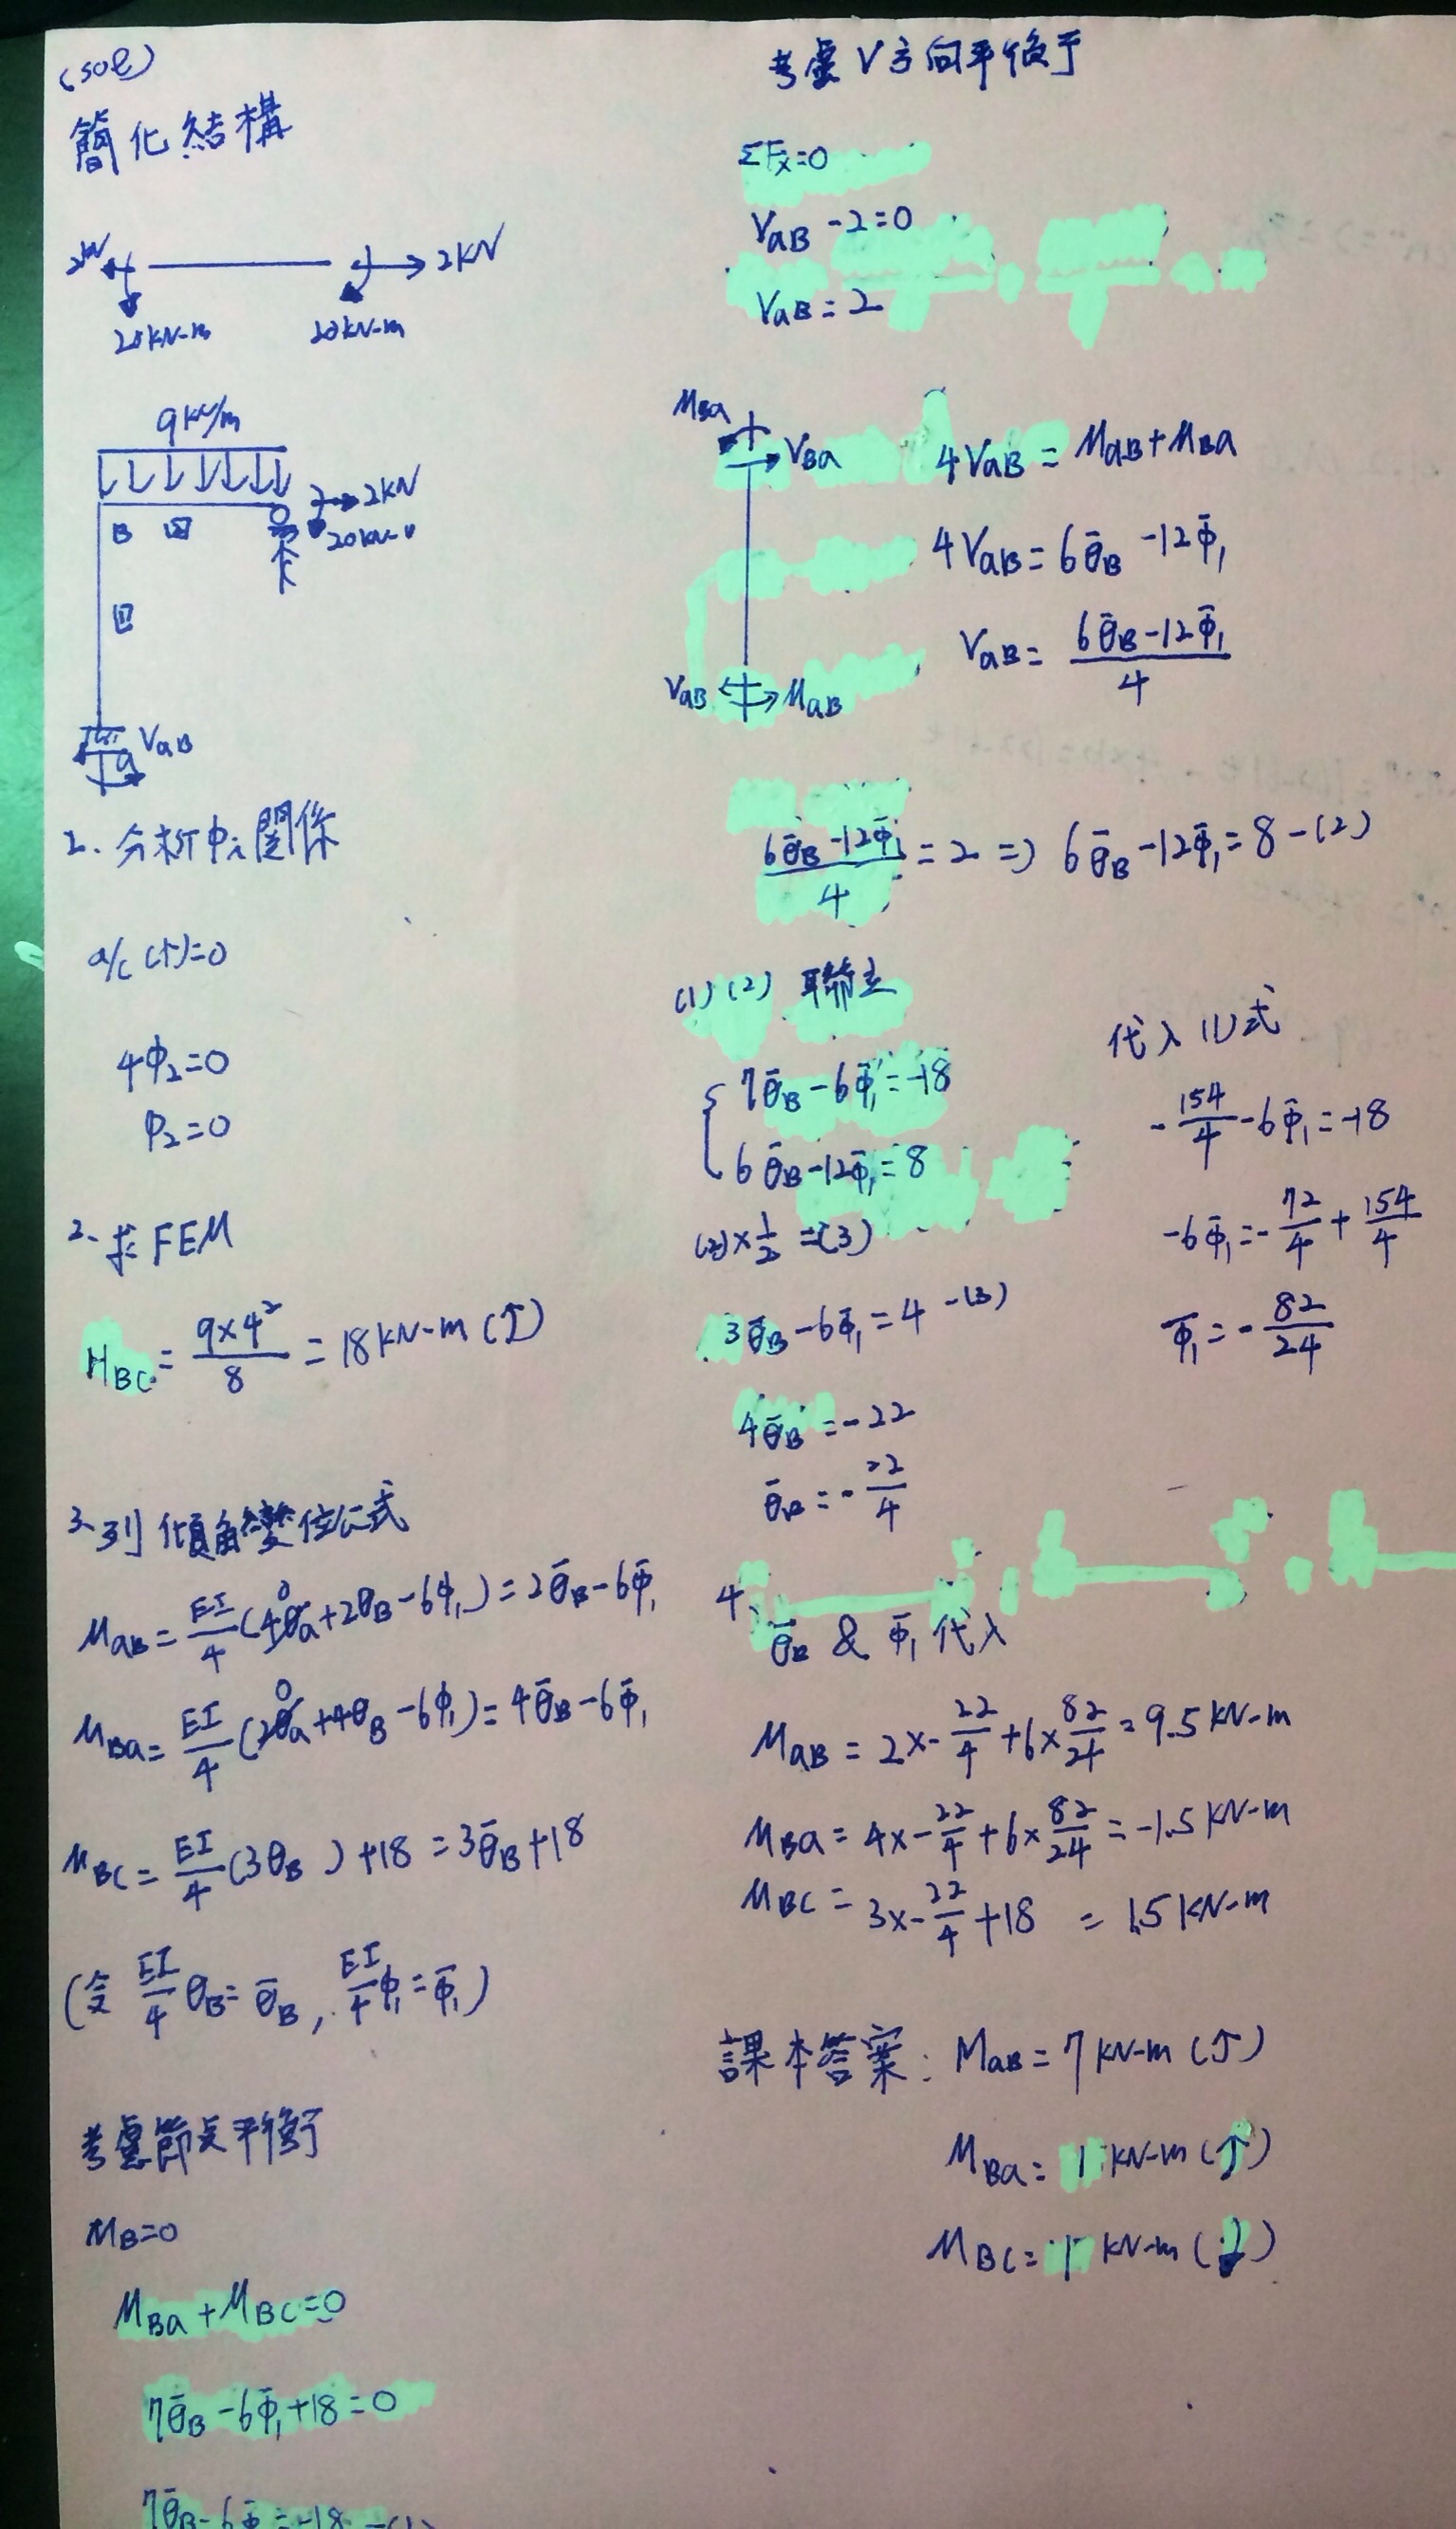 (sol)
簡化結構
2kN
2kN
20kN-m
20kN-m
9kN/m
2kN
B
2
1
VaB
a
2. 分析φi關係
a/c (↑)=0
4φ2=0
φ2=0
2. 求FEM
HBC = 9×4²/8 = 18 kN-m (↺)
3. 列傾角變位公式
MaB = EI/4 (4θa+2θB-6φ1) = 2θ̄B-6φ̄1
0
MBa = EI/4 (2θa+4θB-6φ1) = 4θ̄B-6φ̄1
0
MBC = EI/4 (3θB ) +18 = 3θ̄B+18
(令 EI/4 θB = θ̄B, EI/4 φ1 = φ̄1)
考慮節點平衡
MB=0
MBa+MBC=0
7θ̄B-6φ̄1+18=0
7θ̄B-6φ̄1=-18 -(1)
考慮V方向平衡
ΣFx=0
VaB-2=0
VaB=2
MBa
VBa
VaB
MaB
4VaB = MaB+MBa
4VaB = 6θ̄B-12φ̄1
VaB = (6θ̄B-12φ̄1)/4
(6θ̄B-12φ̄1)/4 = 2 ⇒ 6θ̄B-12φ̄1 = 8 -(2)
(1)(2) 聯立
7θ̄B-6φ̄1=-18
6θ̄B-12φ̄1=8
(2)×1/2 =(3)
3θ̄B-6φ̄1=4 -(3)
4θ̄B=-22
θ̄B=-22/4
代入(1)式
-154/4-6φ̄1=-18
-6φ̄1=-72/4+154/4
φ̄1=-82/24
4. θ̄B & φ̄1 代入
MaB = 2×-22/4+6×82/24 = 9.5 kN-m
MBa = 4×-22/4+6×82/24 = -1.5 kN-m
MBC = 3×-22/4+18 = 1.5 kN-m
課本答案: MaB = 7 kN-m (↺)
MBa = 1 kN-m (↺)
MBC = 1 kN-m (↻)